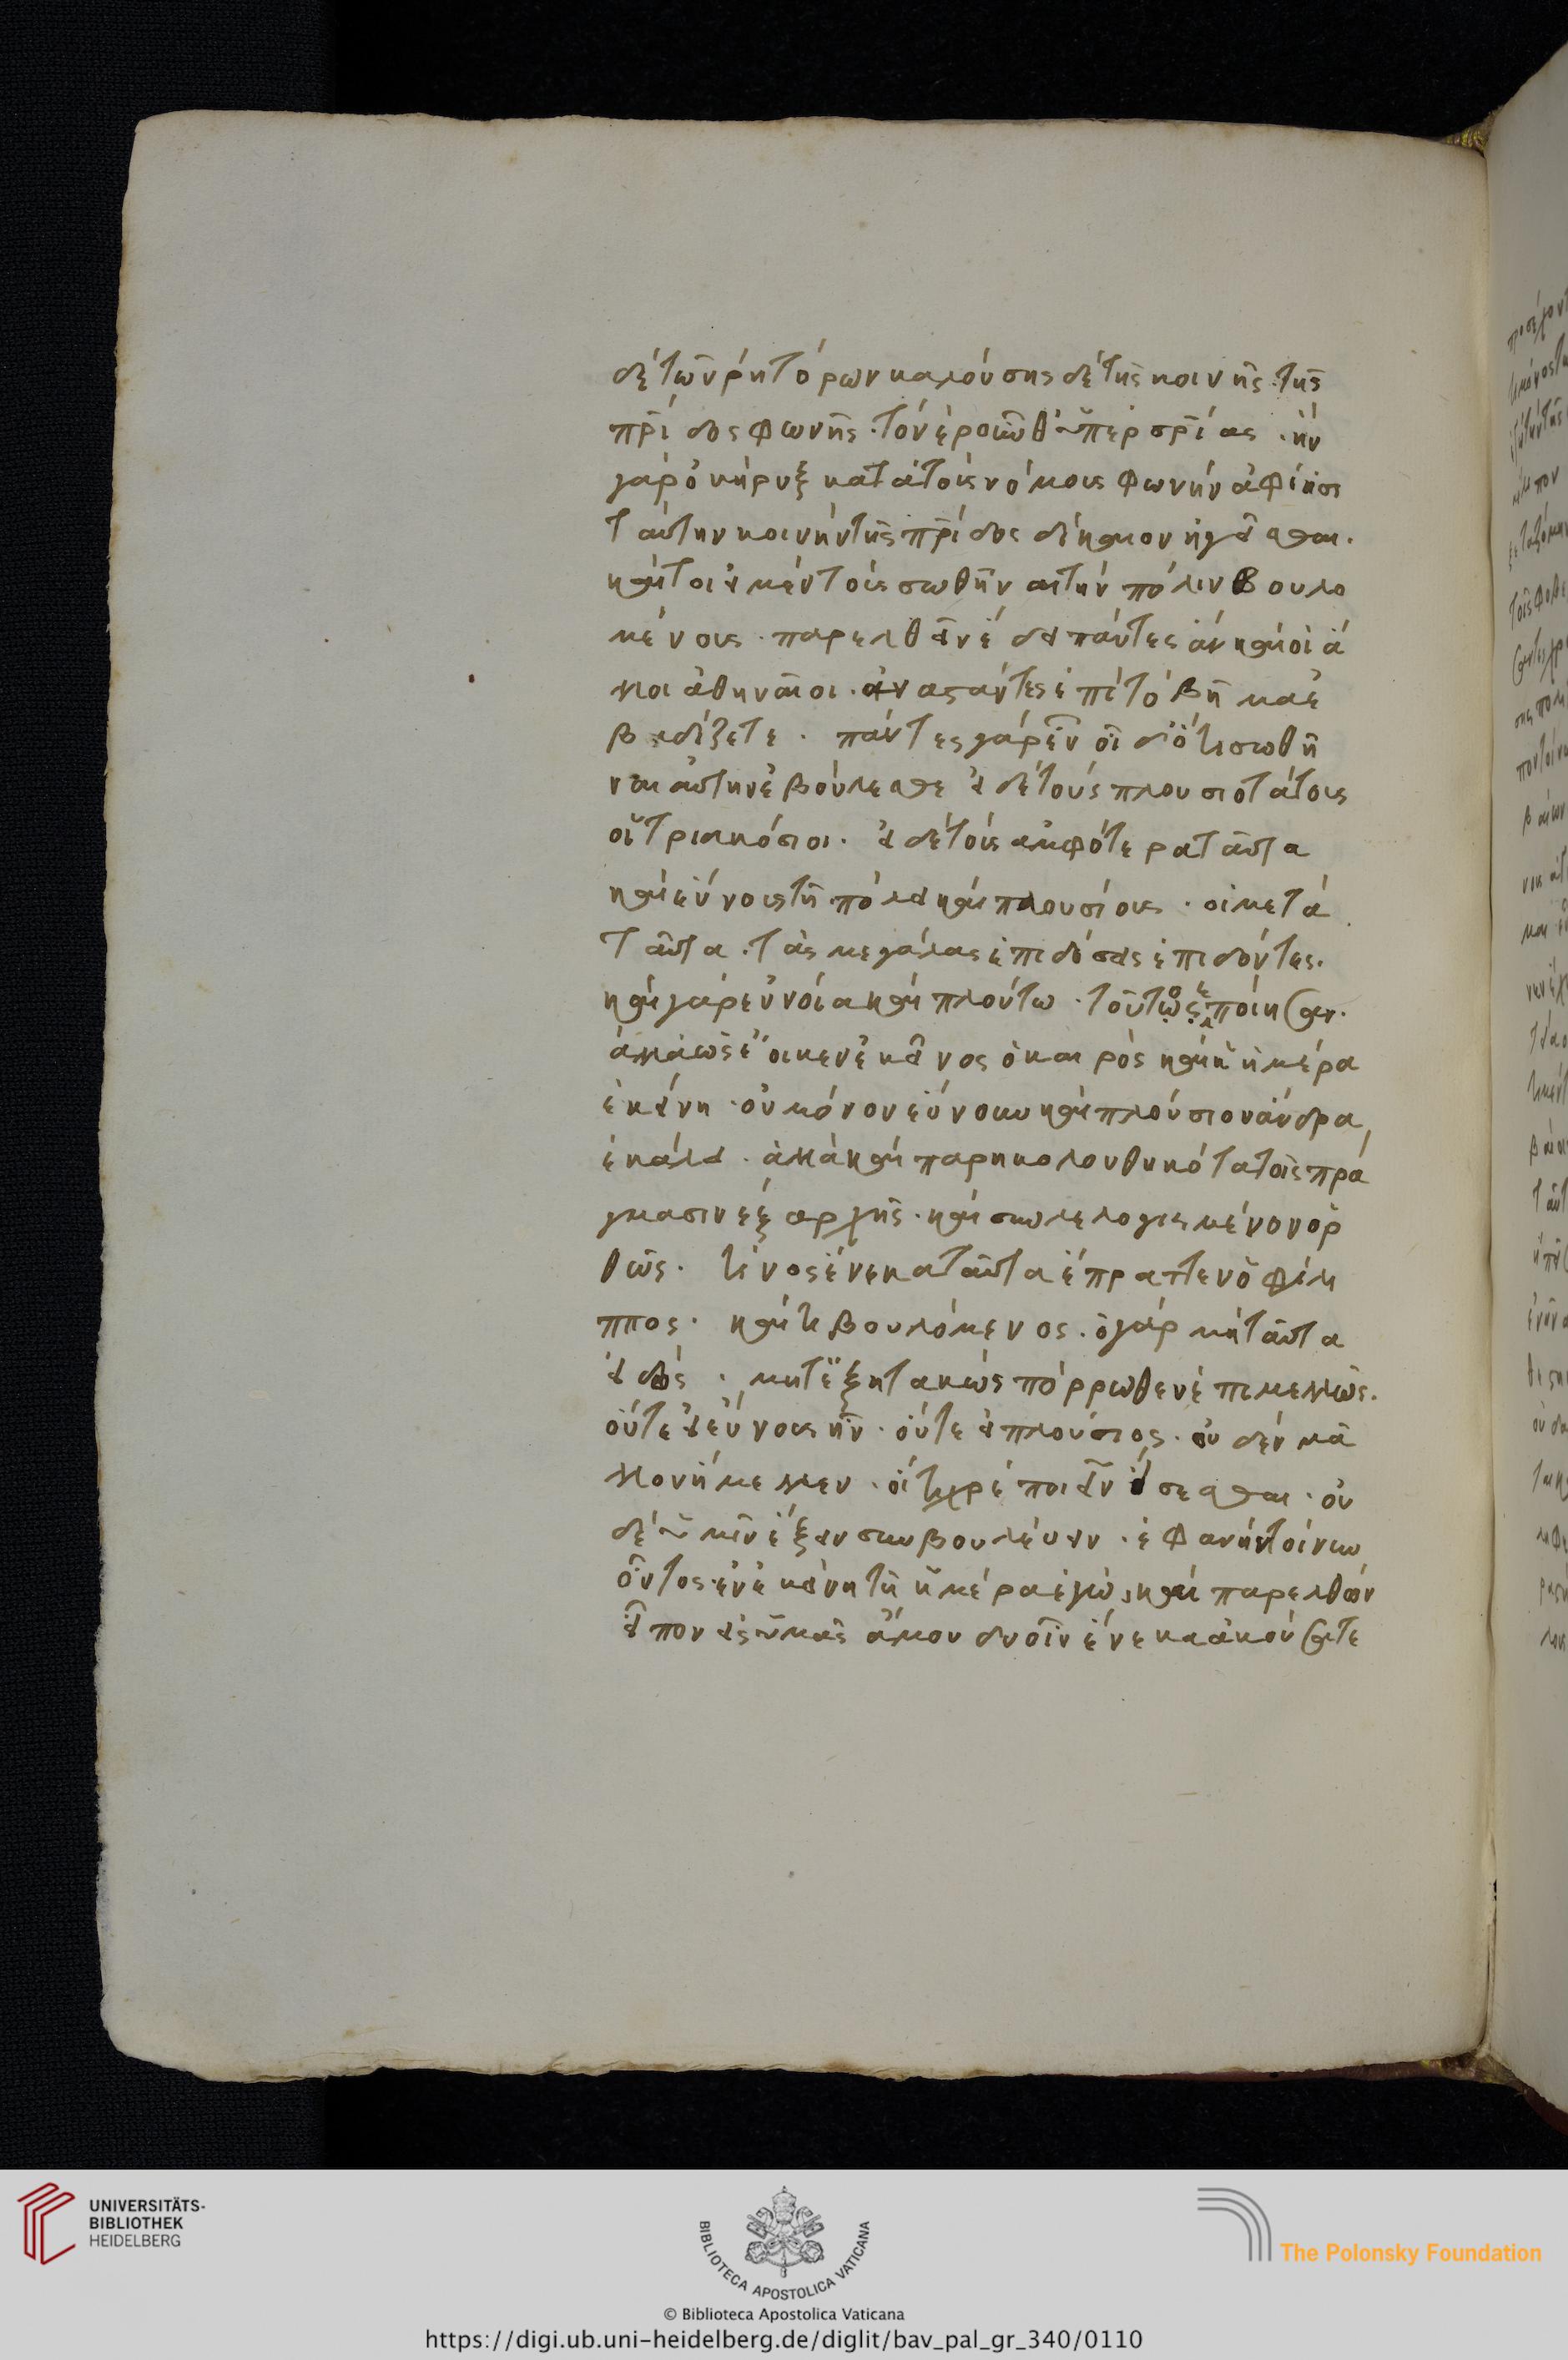 δὲ τῶν ῥητόρων καλούσης δὲ τῆς κοινῆς τῆς
πρ̅ίδος φωνῆς· τὸν ἐροῦνθ' ὑπὲρ σρ̅ίας· ἣν
γὰρ ὁ κήρυξ κατὰ τοὺς νόμους φωνὴν ἀφίησι
ταύτην κοινὴν τῆς πρ̅ίδος δίκαιον ἡγεῖσθαι.
καίτοι εἰ μὲν τοὺς σωθῆναι τὴν πόλιν βουλο
μένους· παρελθεῖν ἔδει πάντες ἂν καὶ οἱ ἄλ
λοι ἀθηναῖοι· ἀναστάντες ἐπὶ τὸ βῆμα ἐ
βαδίζετε· πάντες γὰρ εὖ οἶδ' ὅτι σωθῆ
ναι αὐτὴν ἐβούλεσθε εἰ δὲ τοὺς πλουσιωτάτους
οἱ τριακόσιοι· εἰ δὲ τοὺς ἀμφότερα ταῦτα
καὶ εὔνους τῇ πόλει καὶ πλουσίους· οἱ μετὰ
ταῦτα· τὰς μεγάλας ἐπιδόσεις ἐπιδόντες.
καὶ γὰρ εὐνοίᾳ καὶ πλούτω· τοῦτο ἐποίησαν.
ἀλλ' ὡς ἔοικεν ἐκεῖνος ὁ καιρὸς καὶ ἡ ἡμέρα
ἐκείνη· οὐ μόνον εὔνουν καὶ πλούσιον ἄνδρα,
ἐκάλει· ἀλλὰ καὶ παρηκολουθηκότα τοῖς πρά
γμασιν ἐξ αρχῆς· καὶ συλλελογισμένον ὀρ
θῶς· τίνος ἕνεκα ταῦτα ἔπραττεν ὁ φίλι
ππος· καὶ τί βουλόμενος· ὁ γὰρ μὴ ταῦτα
εἰδὼς· μητ' ἐξητακὼς πόρρωθεν ἐπιμελῶς.
οὔτε εἰ εὔνους ἦν· οὔτε εἰ πλούσιος· οὐδὲν μᾶ
λλον ἤμελλεν· ὅ τι χρὴ ποιεῖν εἴσεσθαι· οὐ
δὲ ὑμῖν ἕξειν συμβουλεύειν· ἐφάνην τοίνυν
οὗτος ἐν ἐκείνῃ τῇ ἡμέρᾳ ἐγώ, καὶ παρελθὼν
εἶπον εἰς ὑμᾶς ἅ μου δυοῖν ἕνεκα ἀκούσατε
UNIVERSITÄTS-
BIBLIOTHEK
HEIDELBERG
BIBLIOTECA APOSTOLICA VATICANA
The Polonsky Foundation
© Biblioteca Apostolica Vaticana
https://digi.ub.uni-heidelberg.de/diglit/bav_pal_gr_340/0110